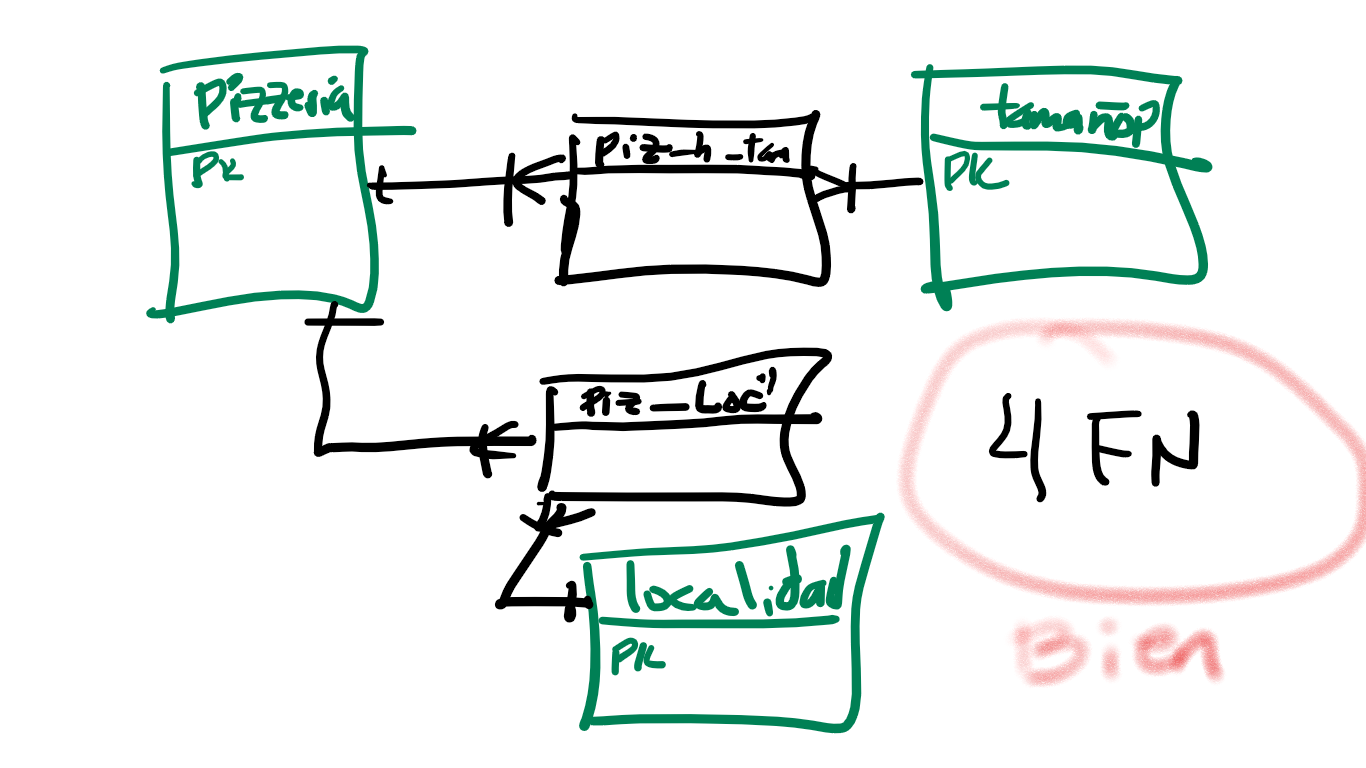 Pizzeria
PK
Piz_h_tam
tamañoP
PK
Piz_Loc
localidad
PK
4 FN
Bien